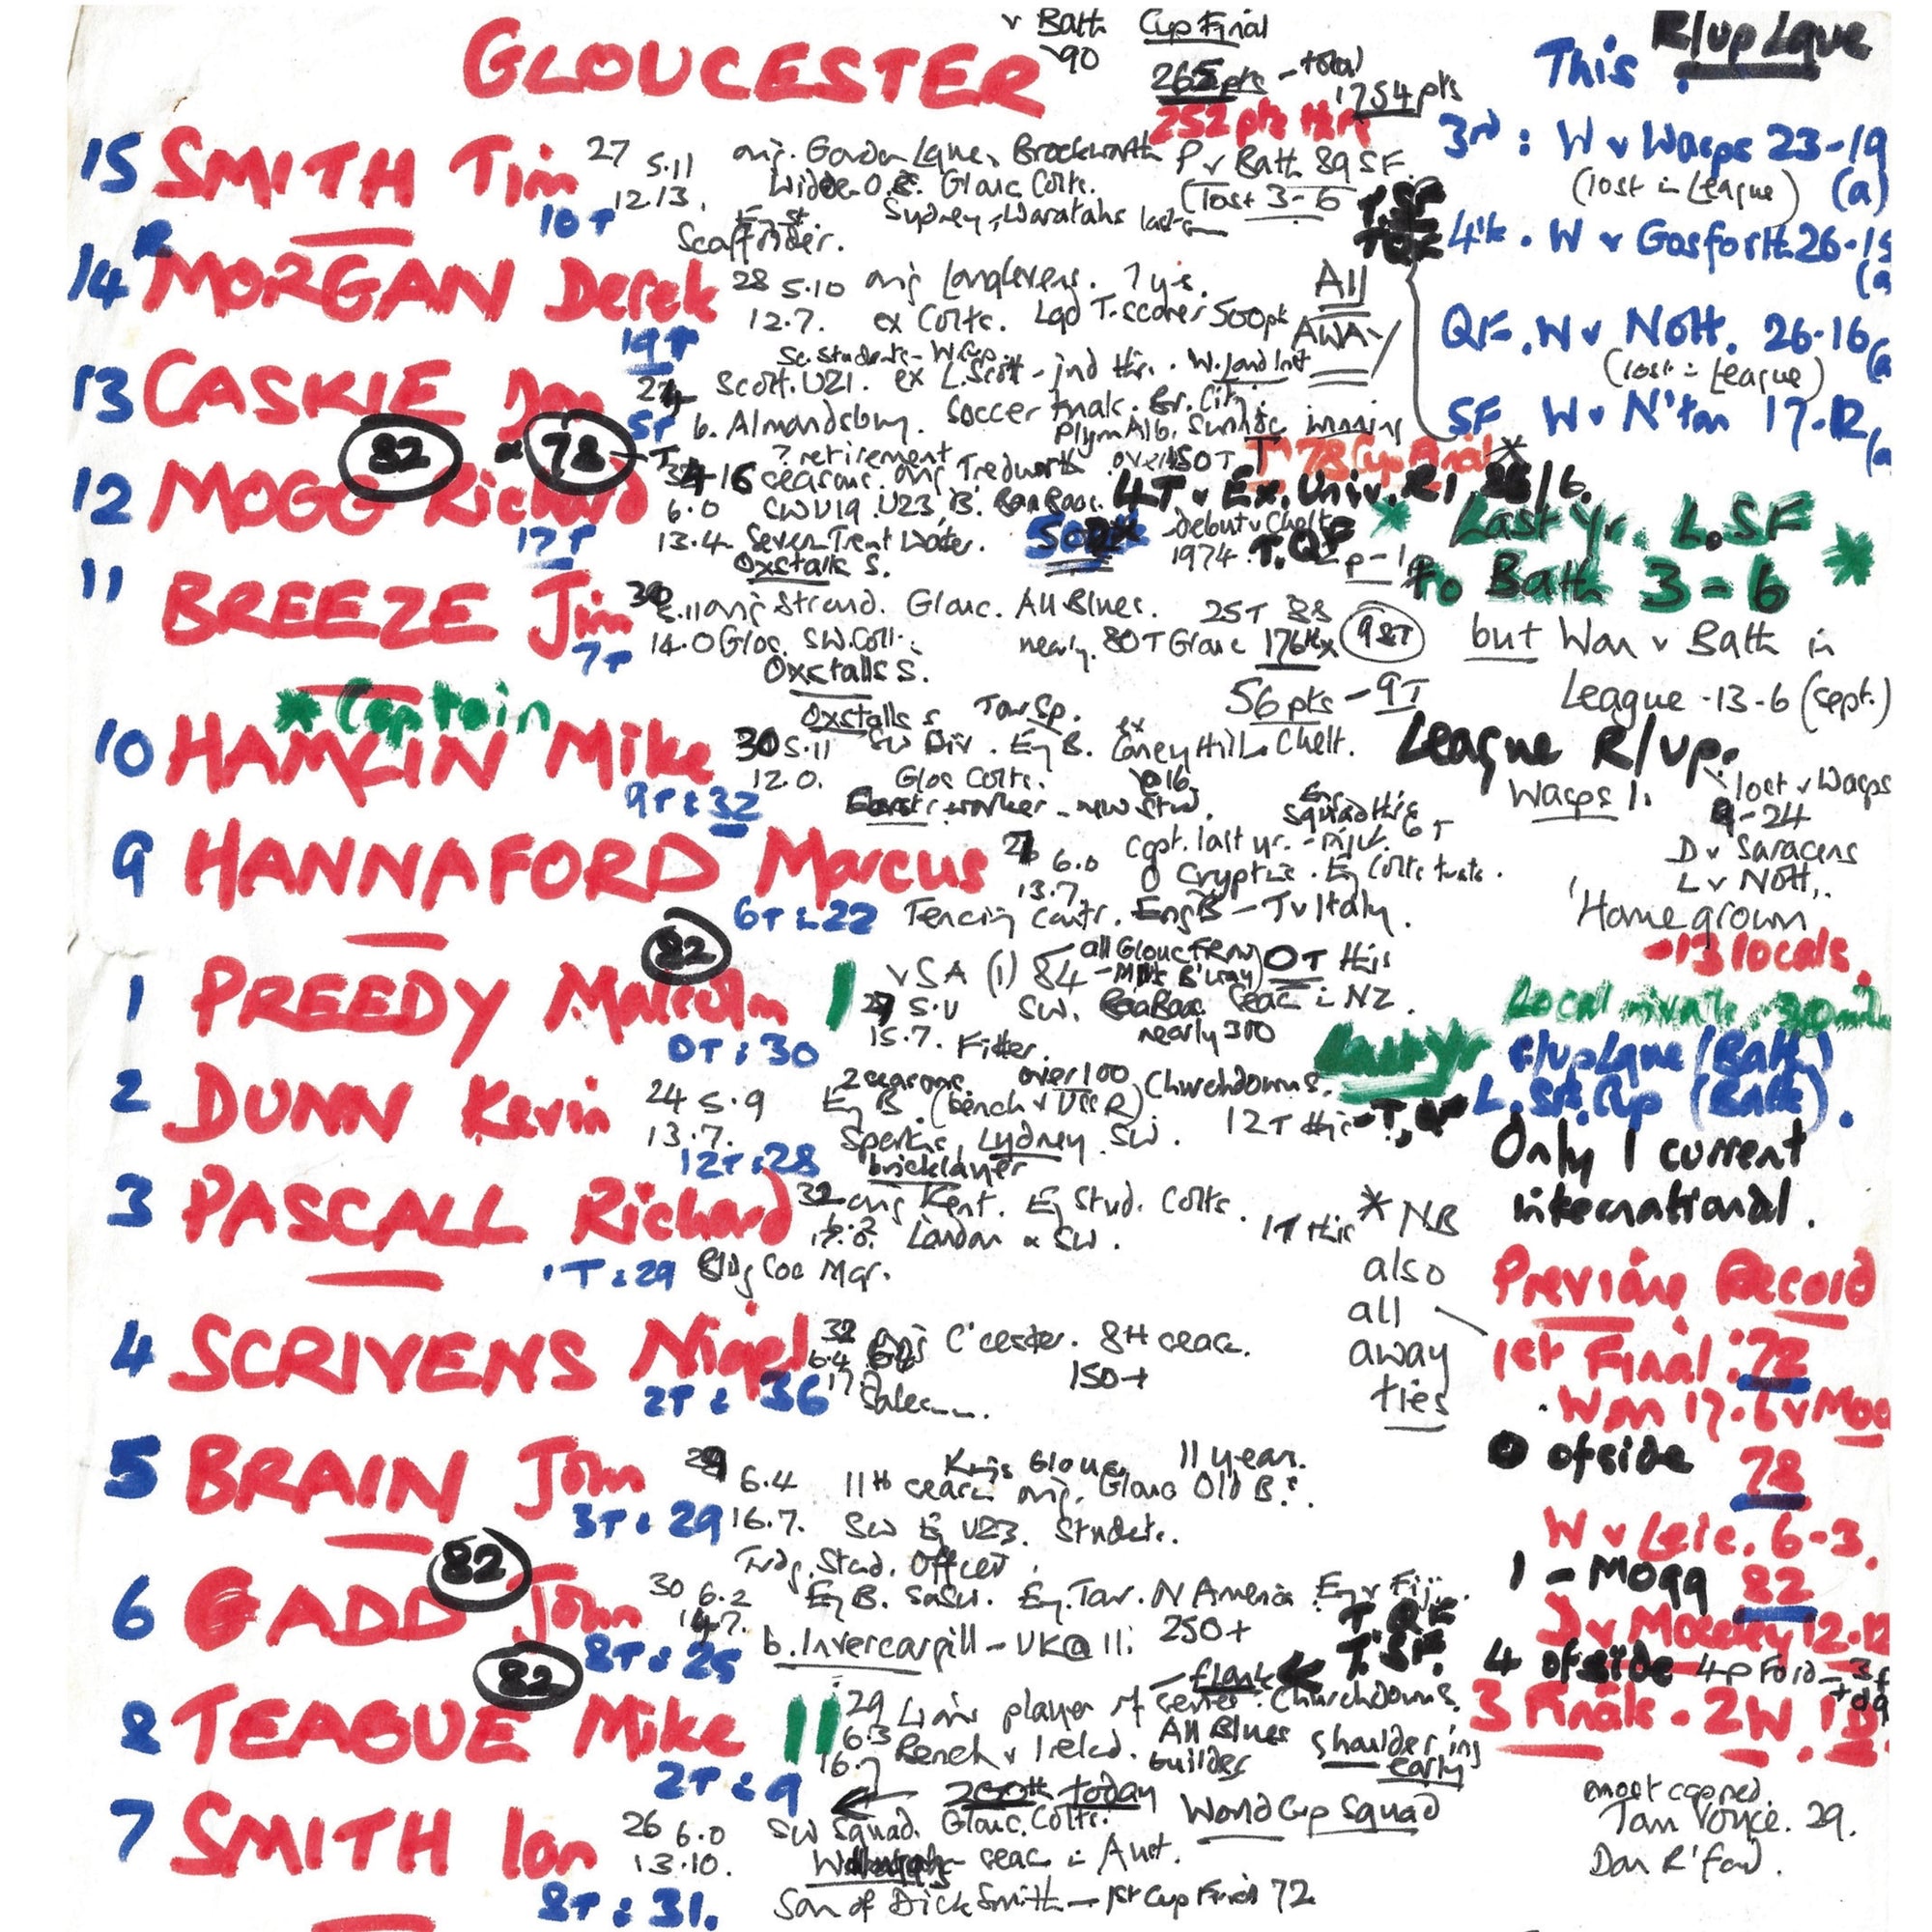 v Bath Cup Final
'90
GLOUCESTER
265 pts - total
1754 pts
252 pts
R/up Lgue
This
15 SMITH Tim 27 5.11
12.13.
10T
orig. Gordon Lgue, Brockworth
Widden O.B. Glouc Colts.
Sydney, Waratahs last
Scaffolder.
P v Bath 89 SF.
(lost 3-6
3rd : W v Wasps 23-19
(lost in League) (a)
14 MORGAN Derek 28 5.10 orig Longlevens. 7 yrs.
12.7. ex Colts. Lgd T. scorer 500pts
19T
All
AWAY
4th. W v Gosforth 26-15
(a
QF. W v Nott. 26-16
(lost in League)
SF W v N'ton 17-12
(a
13 CASKIE Don
Sc. Students - W. Cup.
Scott. U21. ex L. Scott - 2nd this.
b. Almondsbury. Soccer trials. Br. City.
Plym Alb.
5T
82 78
12 MOGG Richard
? retirement
16 seasons. orig Tredworth over 150T T 78 Cup Final *
6.0 SW U19. U23 'B'. BaaBaas. 4T v Ex. Univ. R1
13.4 Severn Trent Water. debut v Chelt
1974 T. QF
Oxstalls S.
17T
* Last Yr. L. SF *
to Bath 3-6
but Won v Bath in
League - 13-6 (Sept.)
11 BREEZE Jim 30
5.11 orig Stroud. Glouc. All Blues. 25T 88
14.0 Glos. SW. Coll. nearly 80T Glouc 176 98T
Oxstalls S.
7T
56 pts - 9T
* Captain
10 HAMLIN Mike 30 5.11
12.0.
9T : 32
Oxstalls S
SW Div. Eng B. ex Coney Hill Chelt.
Glos Colts. @16
League R/up.
Wasps 1.
lost v Wasps
9-24
D v Saracens
L v Nott.
9 HANNAFORD Marcus 6.0
13.7.
6T : 22
Capt. last yr. - inj.
O Cryptis. Eng Colts trials.
Fencing Contr. Eng B - T v Italy.
'Homegrown
-13 locals.
Local rivals. 30 mls
82
1 PREEDY Malcolm
v SA (1) 84
all Glouc FRW
0T this
5.11 SW. BaaBaas. seas in NZ.
15.7. Fitter. nearly 300
0T : 30
Last yr
r/up Lgue (Bath)
L. SF. Cup (Bath).
2 DUNN Kevin 24 5.9
13.7.
12T : 28
2 seasons. over 100 Churchdowns.
Eng B. (bench v USSR)
Spartans, Lydney. SW. 12T this - T, QF
bricklayer
Only 1 current
international.
3 PASCALL Richard 32 orig Kent. Eng Stud. Colts.
London & SW. 1T this
1T : 29 Bldg Soc Mgr.
* NB
also
all
away
ties
Previous Record
1st Final : 72
Won 17-6 v Mos
4 SCRIVENS Nigel 32 orig C'cester. 8th seas.
6.4
150+
2T : 36
0 ofside 78
W v Leic. 6-3.
5 BRAIN John 29 6.4
16.7.
3T : 29
Kings Glouc 11 years.
11th seas orig. Glouc Old B.
SW Eng U23. Students.
Trdg. Stnd. Officer
1 - Mogg 82
D v Moseley 12-12
82
6 GADD John 30 6.2
14.7.
8T : 25
Eng B. S&SW. Eng Tour. N America. Eng v Fiji.
b. Invercargill - UK @ 11. 250+
T. QF
T. SF.
4 ofside 4p Ford - 3p
+ dg
3 Finals - 2W 1D
82
8 TEAGUE Mike
29 Lions player of series. Churchdowns.
6.3 Bench v Ireld. All Blues shoulder inj
16.7 builder early
flank
2T : 9
200th today
World Cup Squad
7 SMITH Ian 26 6.0
13.10.
8T : 31.
SW Squad. Glouc. Colts.
seas in Aust.
Son of Dick Smith - 1st Cup Final 72
most capped.
Tom Voyce. 29.
Don R'ford.